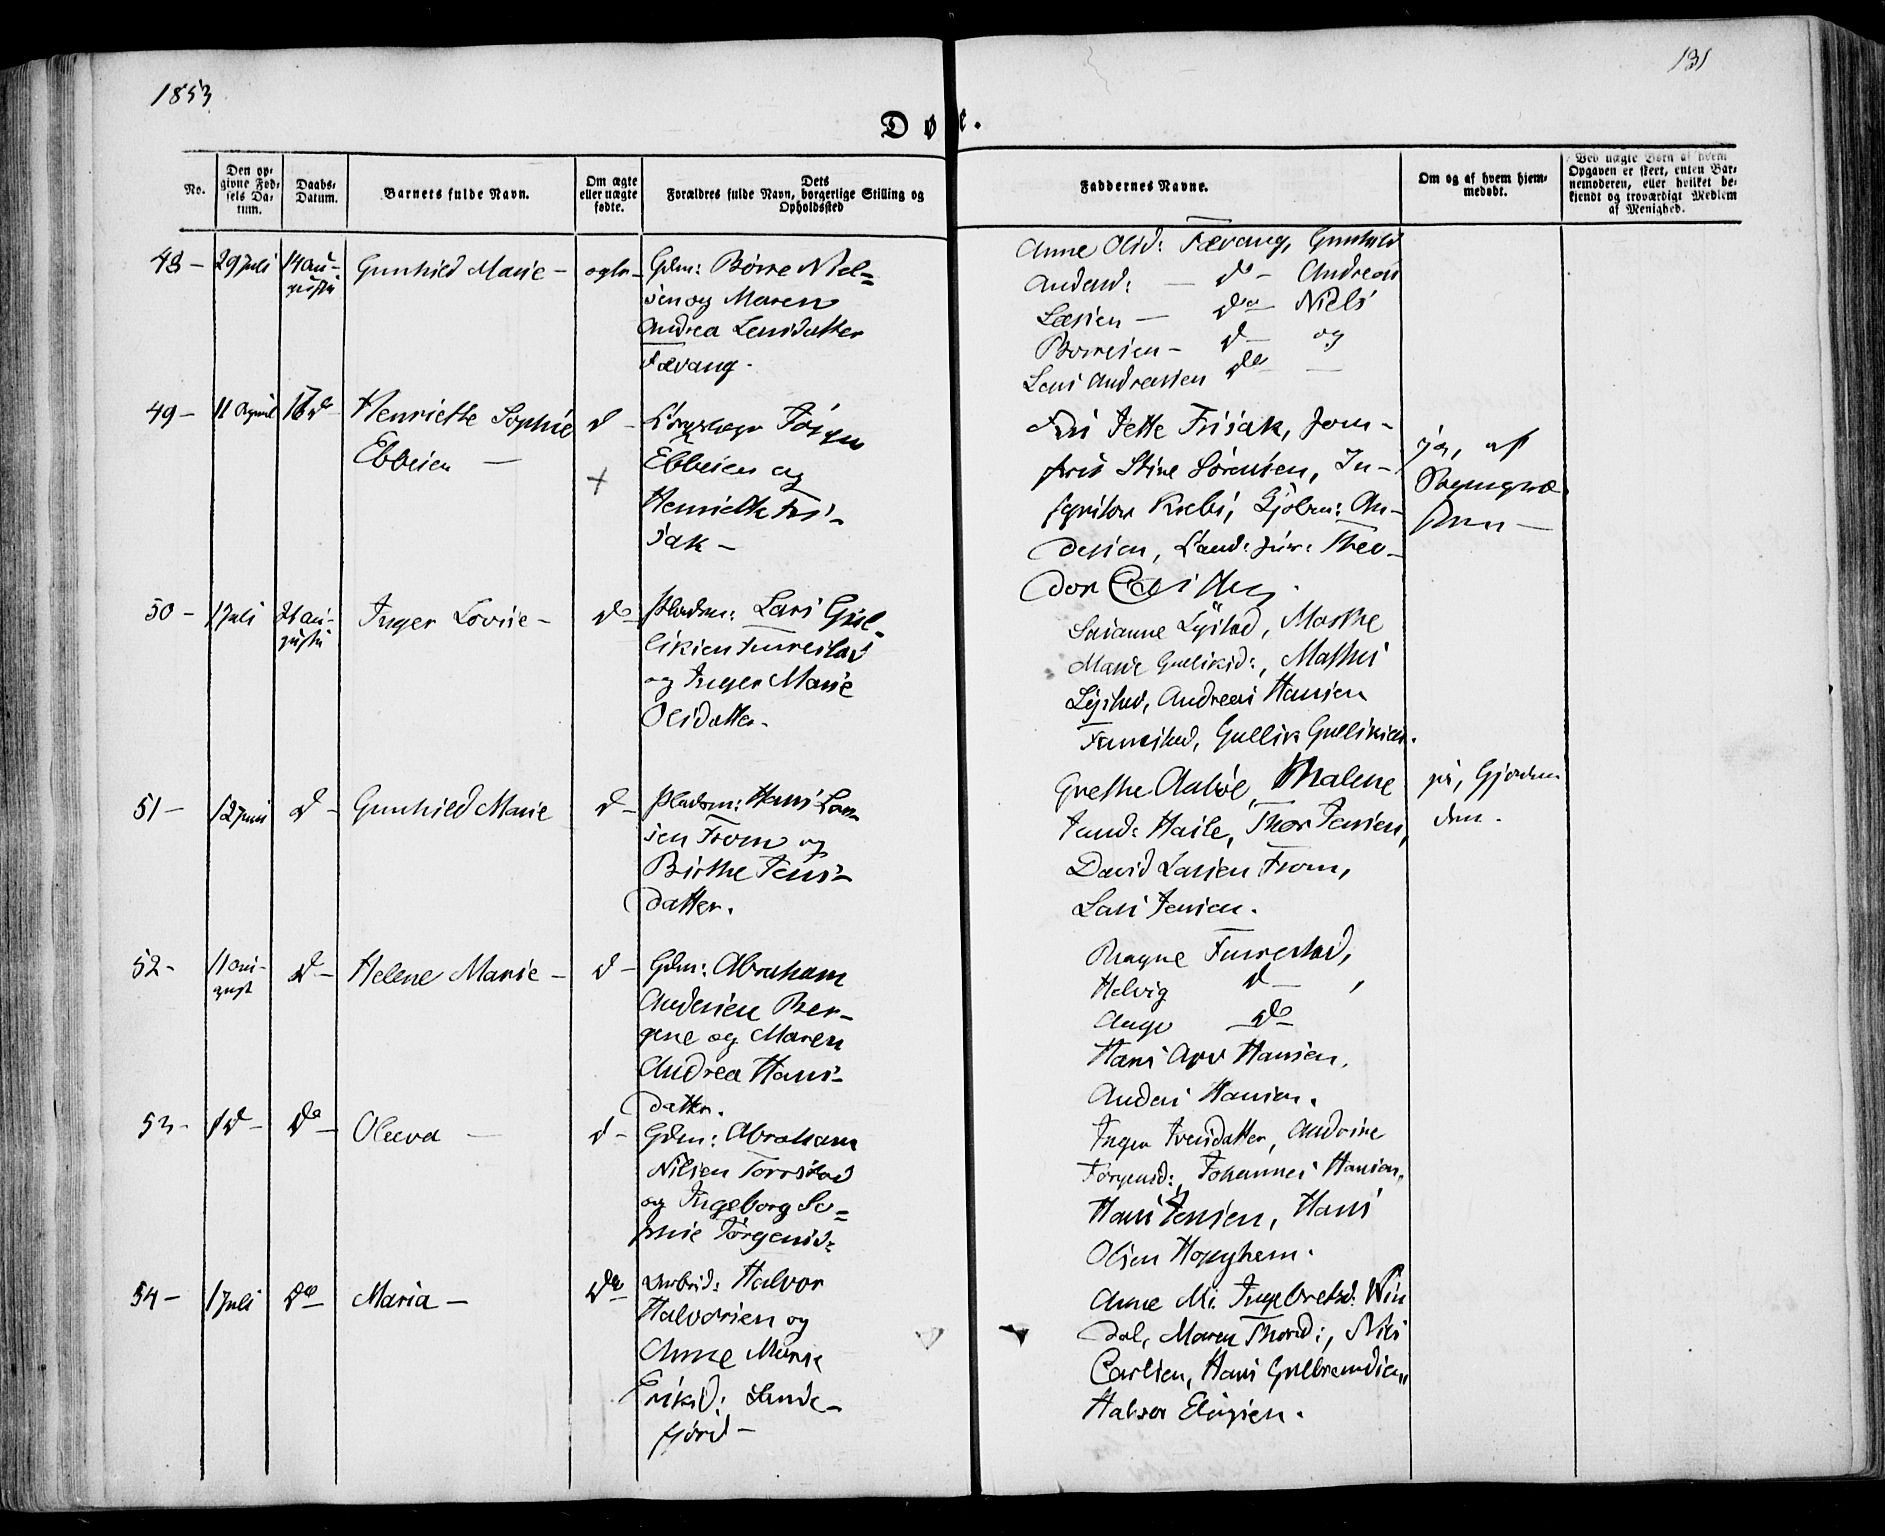 1853
131
Døbte.
No.
Den op-
givne Fød-
sels Da-
tum.
Daabs-
Datum.
Barnets fulde Navn.
Om ægte
eller uægte
fødte.
Dets
Forældres fulde Navn, borgerlige Stilling og
Opholdssted
Faddernes Navne.
Om og af hvem hjem-
medøbt.
Ved uægte Børn af hvem
Opgaven er skeet, enten Bar-
nemoderen, eller hvilket be-
kjendt og troværdigt Medlem
af Menighed.
48 – 29 Juli 14 Au-
gusti
Gunhild Marie – ægte –
Gdm: Børre Niel=
sen og Maren
Andrea Larsdatter
Fævang.
Anne Olsd: Fævang, Gunhild
Andersd: – do – Andreas
Larsen – do – Niels
Børresen – do – og
Lars Andreassen do –
49 – 11 April 16 do
Henriette Sophie
Ebbesen –
d –
+
Jørgen
Ebbesen og
Henriette Fri-
sak –
Frü Jette Frisak, Jom-
frü Stine Sørensen, In-
Krebs, Kjøbm: An-
dersen, Theo-
dor
ja, af
50 – 1 Juli 21 Au-
gusti
Inger Lovise –
do –
Pladsm: Lars Gul-
liksen Furestad
og Inger Marie
Olsdatter.
Susanne Lystad, Marthe
Marie Gulliksd:, Mathis
Lystad, Andreas Hansen
Furestad, Gullik Gulliksen.
51 – 12 Juni d –
Gunhild Marie
d –
Pladsm: Hans Lar-
sen From og
Birthe Jens-
datter.
Grethe Aabøe, Malene
Jensd: Haile, Thor Jensen,
David Larsen From,
Lars Jensen.
ja, Gjordem
dren.
52 – 1 Au-
gust
d –
Helene Marie –
d –
Gdm: Abraham
Andersen Ber-
gene og Maren
Andrea Hans-
datter.
Ragne Furrestad,
Helvig d – ,
Aage do –
Hans Hansen,
Anders Hansen.
53 – 1 d – do –
Oleeva –
d –
Gdm: Abraham
Nilsen Torrstad
og Ingeborg So=
phie Jørgensd:
Inger Iversdatter, Andrine
Jørgensd:, Johannes Hansen,
Hans Jensen, Hans
Olsen Hopghem.
54 – 1 Juli do –
Maria –
do –
Arbeid: Halvor
Halvorsen og
Anne Marie
Eriksd: Sande-
fjord –
Anne M: Ingebretsd: Vin
dal, Maren Thorsd:, Nils
Carlsen, Hans Gulbrandsen,
Halvor Elíassen.